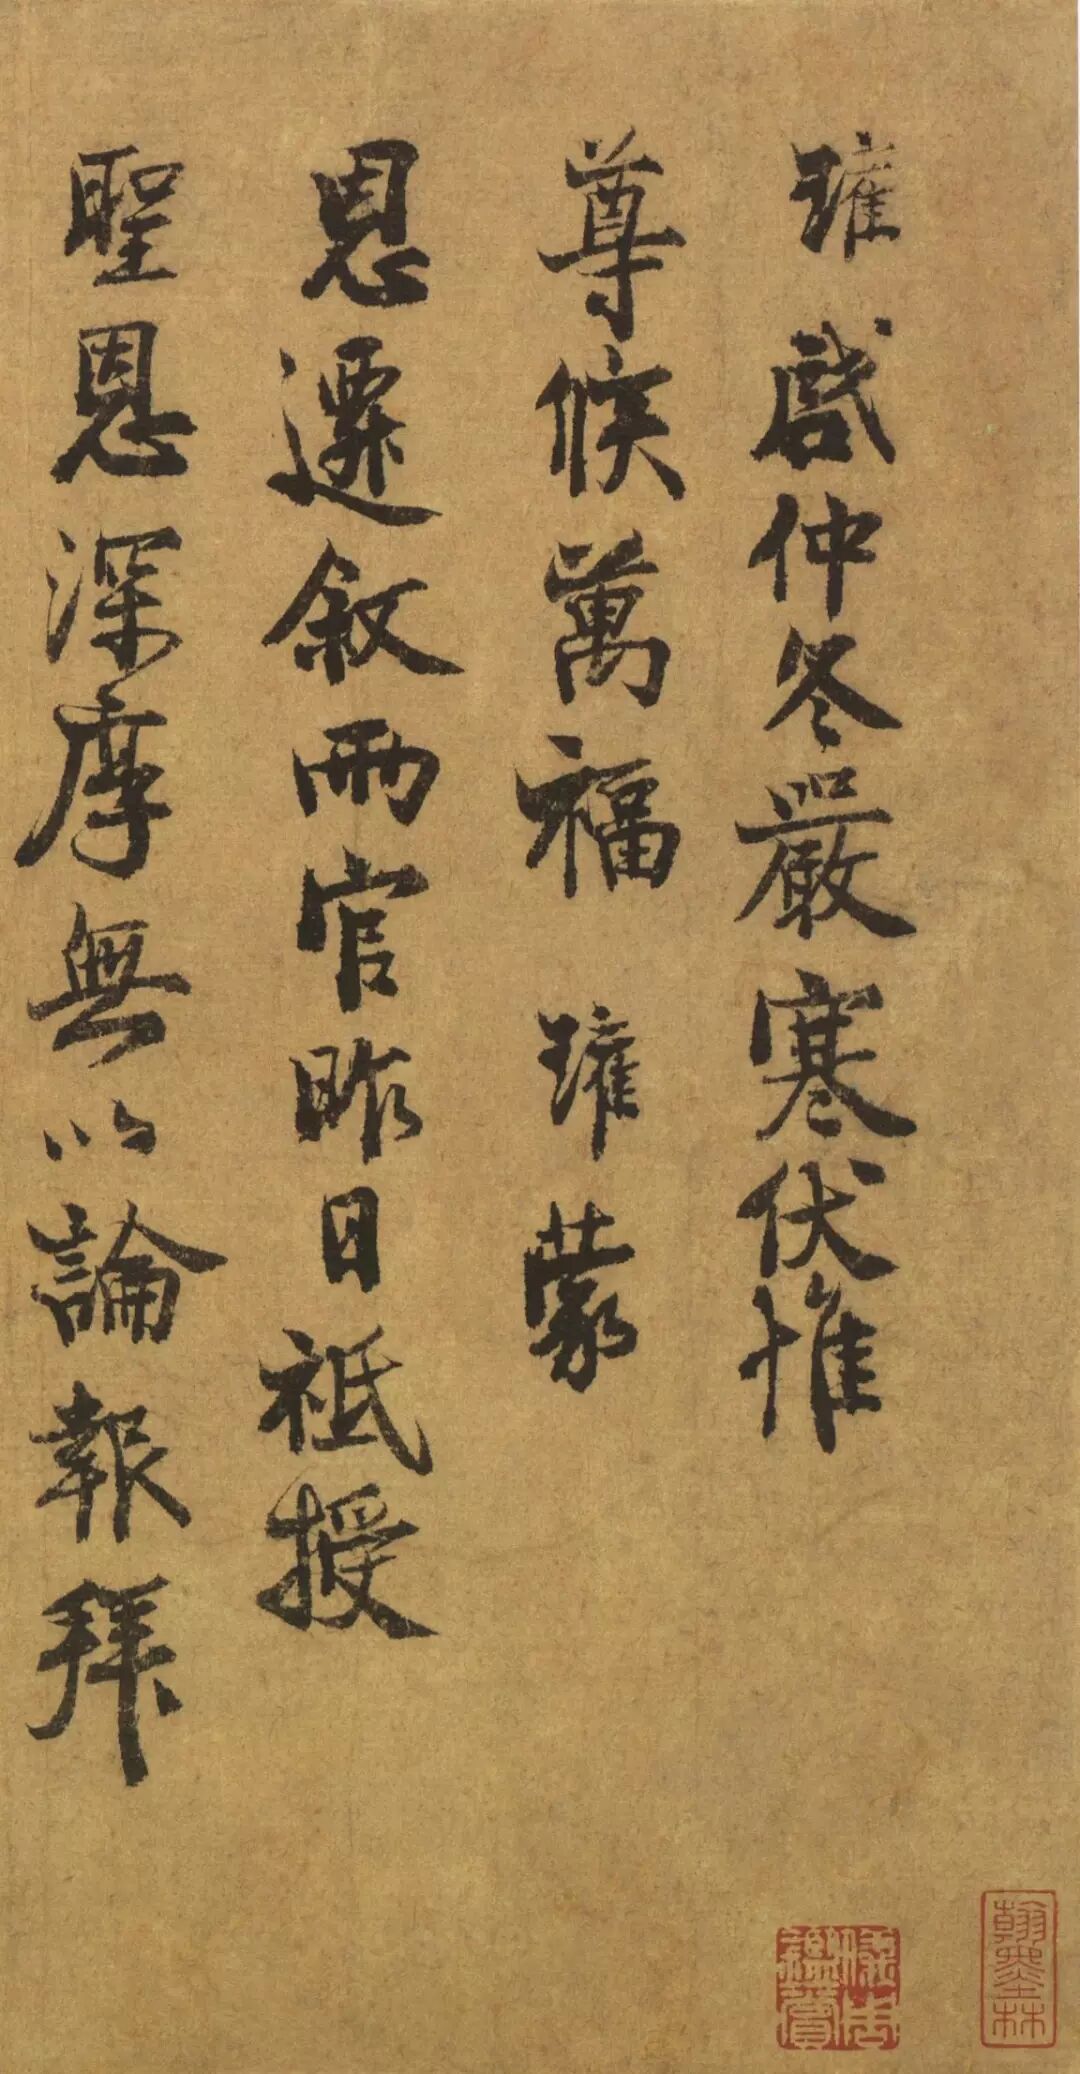 啟仲冬嚴寒伏惟
尊候萬福 蒙
恩遷叙兩官昨日祗授
聖恩深厚無以論報拜
翰墨林
儀周鑑賞